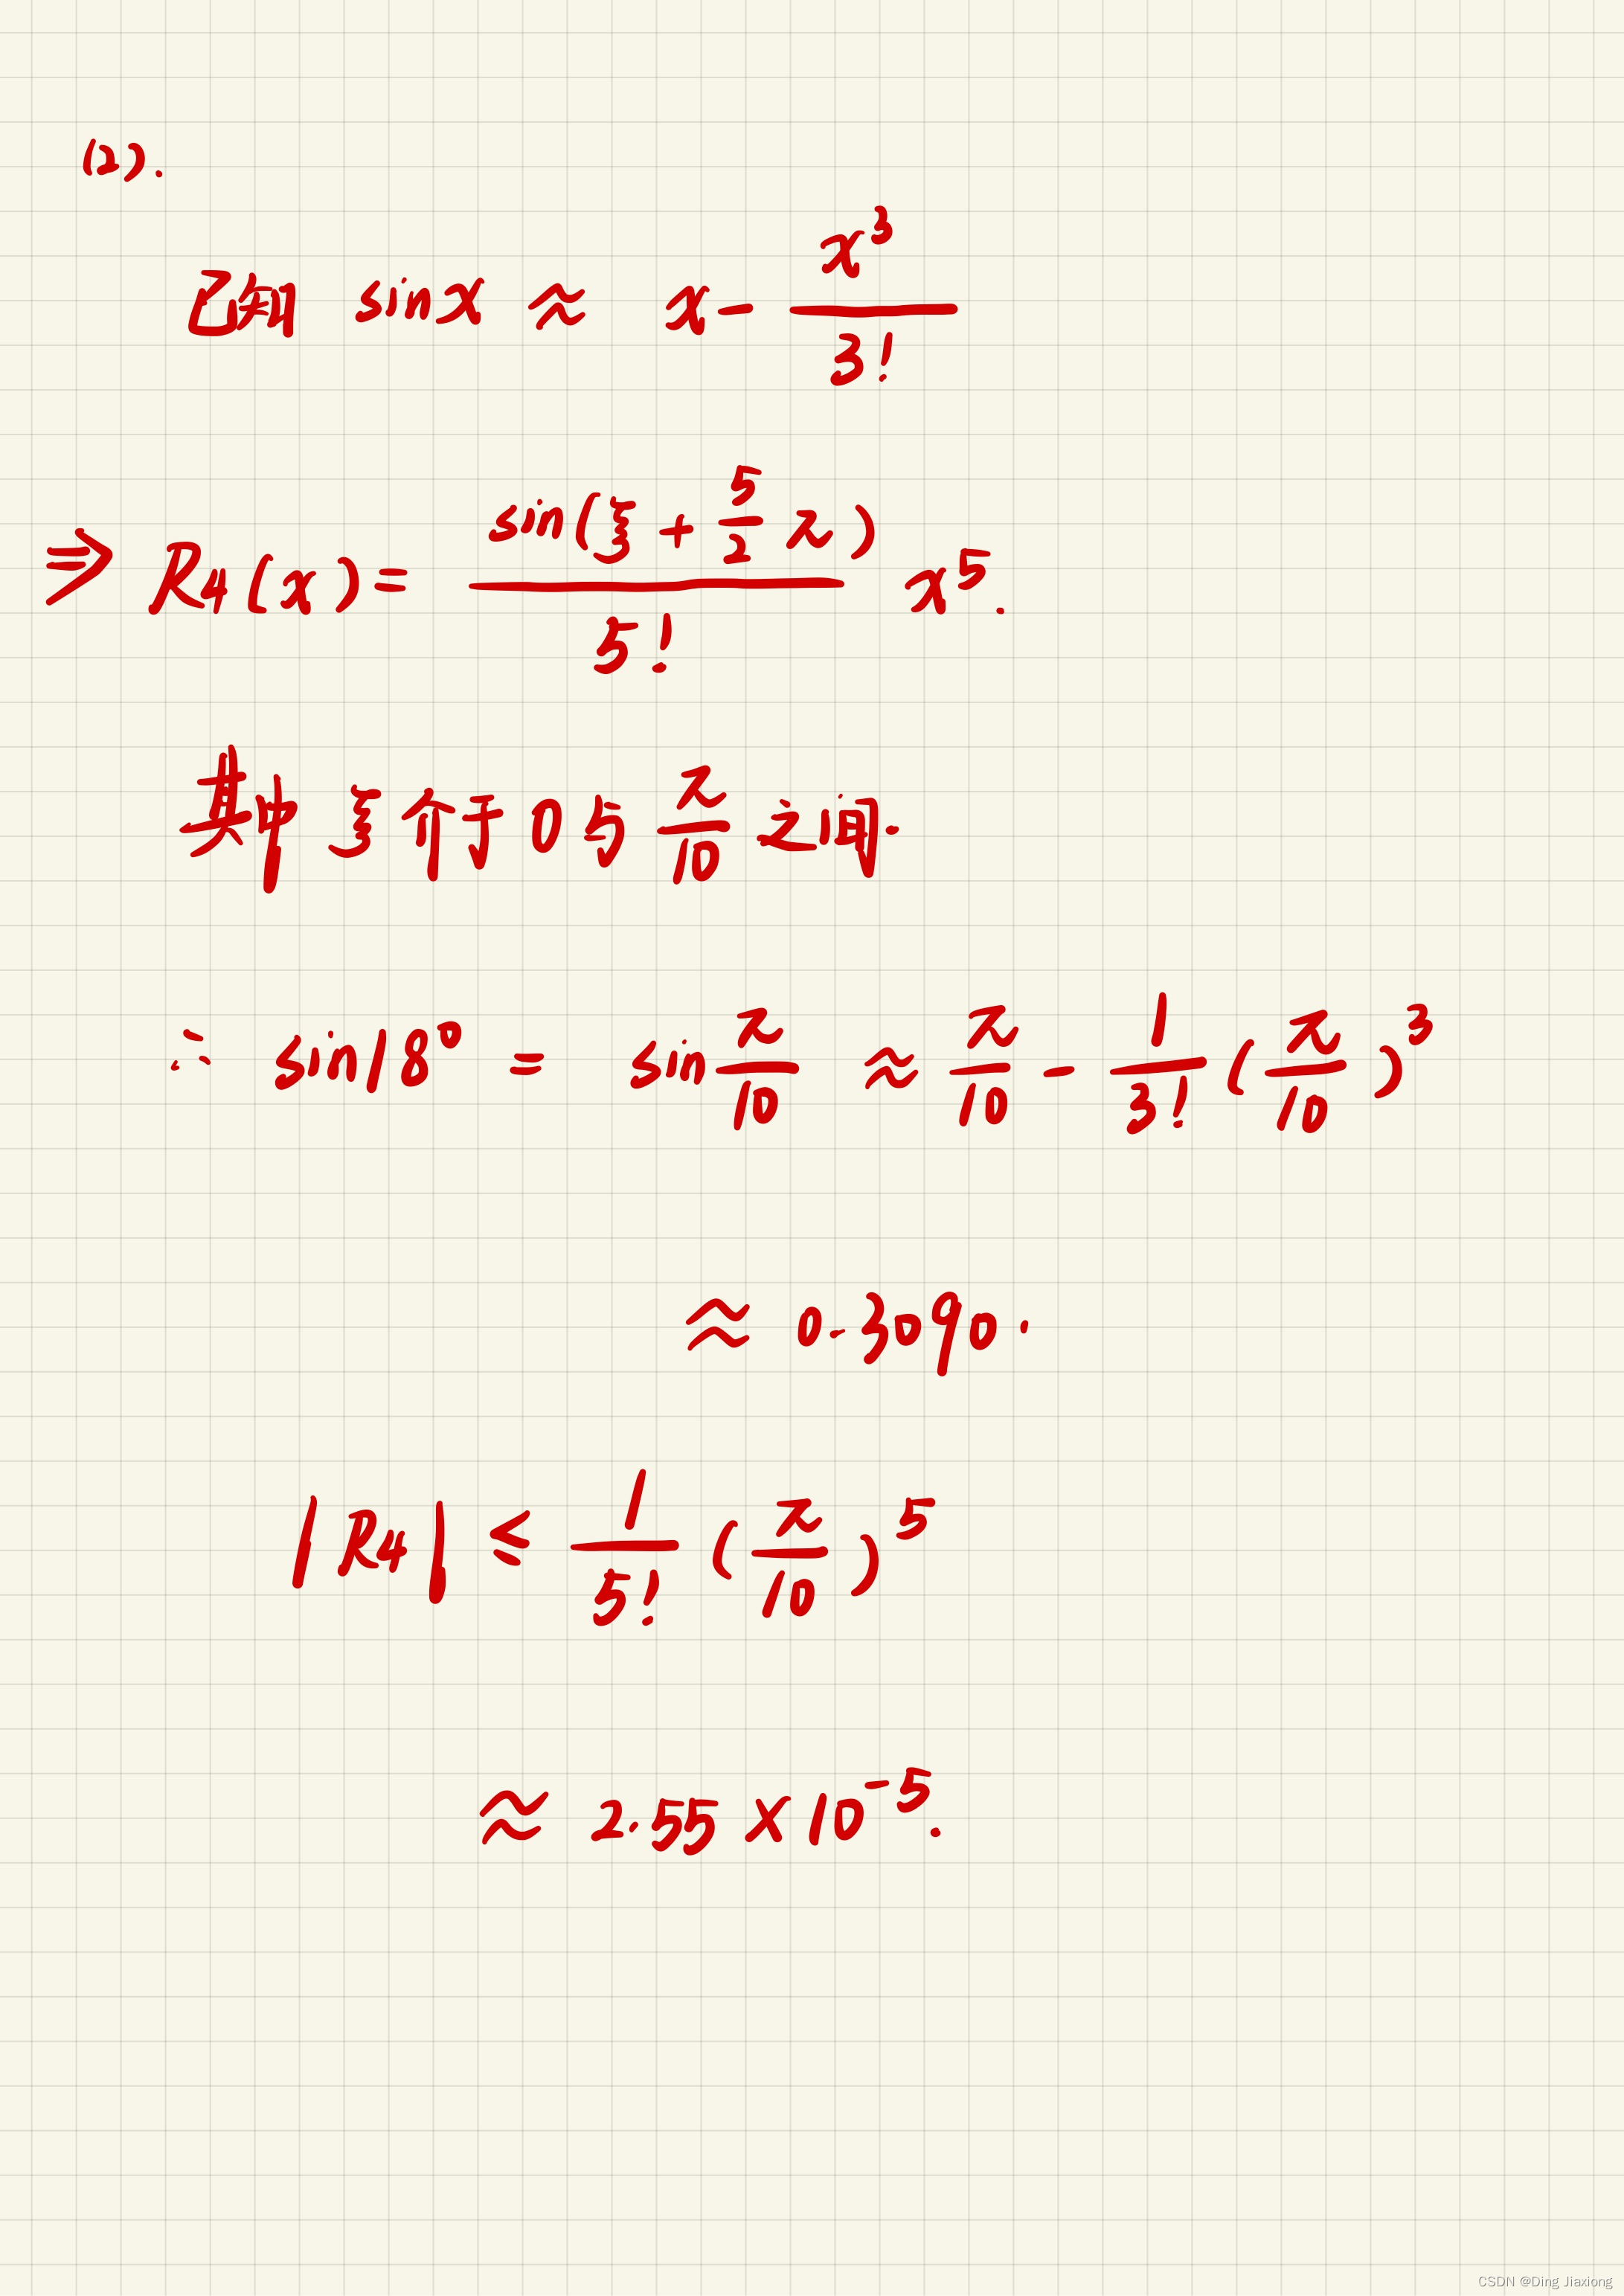 (2).
已知 sinx ≈ x - x³/3!
⇒ R₄(x) = sin(ξ + 5/2 π)/5! x⁵.
其中 ξ 介于 0 与 π/10 之间.
∴ sin18° = sin π/10 ≈ π/10 - 1/3! (π/10)³
≈ 0.3090.
|R₄| ≤ 1/5! (π/10)⁵
≈ 2.55 × 10⁻⁵.
CSDN @Ding Jiaxiong